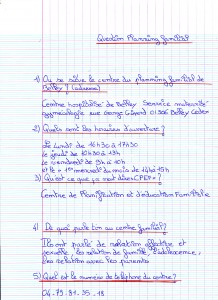 Question Planning familial
1) Où se situe le centre du planning familial de
Belley ? (adresse)
Centre hospitalier de Belley Service maternité
gynécologie rue Georges Girerd 01306 Belley Cedex
2) Quels sont les horaires d'ouverture ?
le lundi de 16h30 à 17h30
le jeudi de 10h30 à 13h
le vendredi de 9h à 10h
et le 1er mercredi du mois de 14h à 15h
3) Qu'est ce que ça veut dire « CPEF » ?
Centre de Planification et d'éducation Familiale
4) De quoi parle t'on au centre familial ?
Ils ont parlé de relation affective et
sexuelle, les relation de famille, l'adolescence,
les relation avec les parents
5) Quel est le numéro de téléphone du centre ?
04.79.81.35.18